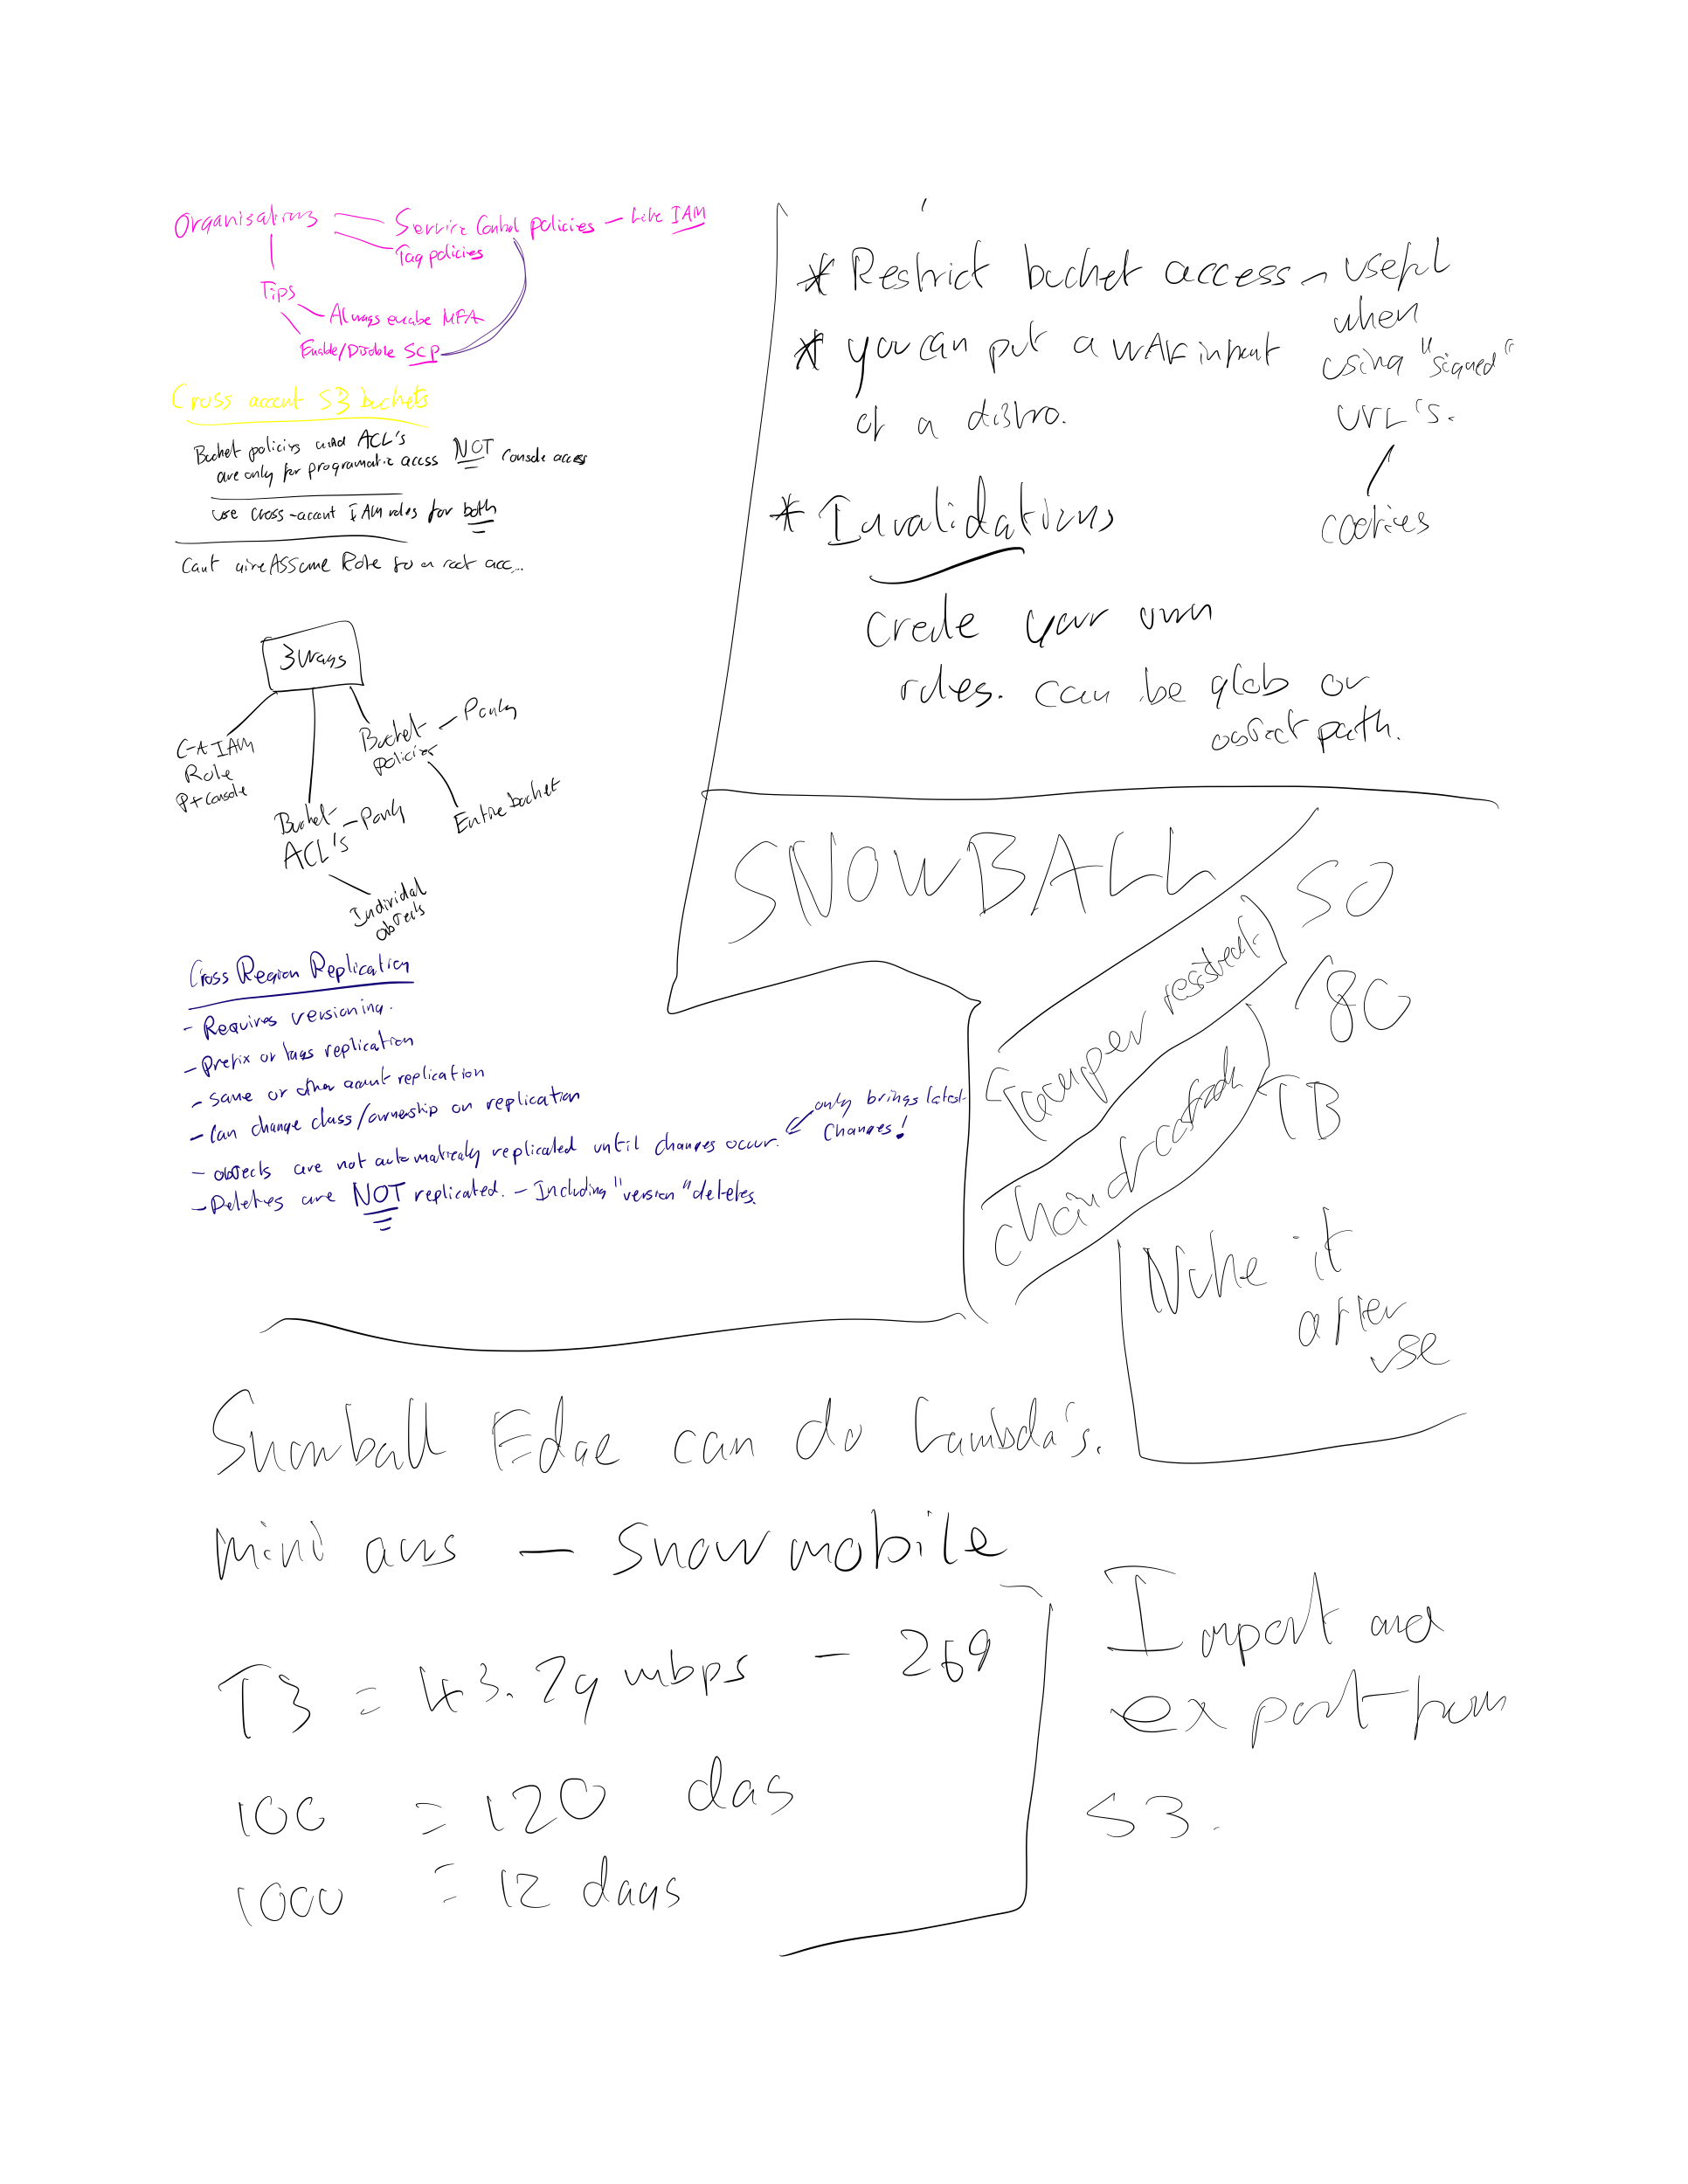 Organisations
Service Control policies - Like IAM
Tag policies
Tips
Always enabe MFA
Enable/Disable SCP
Cross account S3 buckets
Bucket policies and ACL's
are only for programatic access NOT console access
use cross-account IAM roles for both
Cant AssumeRole root acc...
3 Ways
C-A IAM
Role
P+Console
Bucket - Ponly
ACL's
Individal
objects
Bucket - Ponly
policies
Entire bucket
Cross Region Replication
- Requires versioning.
- Prefix or tags replication
- same or other acount replication
- Can change class/ownership on replication
- objects are not automaticaly replicated until changes occur.
only brings latest
changes!
- Deletes are NOT replicated. - Including "version" deletes.
* Restrict bucket access - useful
when
using "signed"
URL's.
cookies
* you can put a WAF in front
of a distro.
* Invalidations
Create your own
rules. can be glob or
object path.
SNOWBALL
50
80
TB
Tamper resistent
chain of custody
Nuke it
after
use
Snowball Edge can do Lambda's.
mini aws - Snowmobile
T3 = 43.29 mbps - 269
100 = 120 das
1000 = 12 days
Import and
export from
S3.